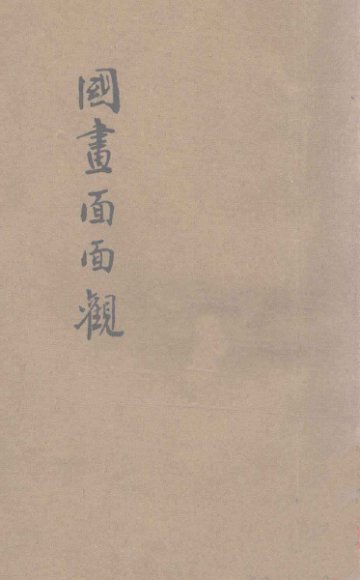 國畫面面觀